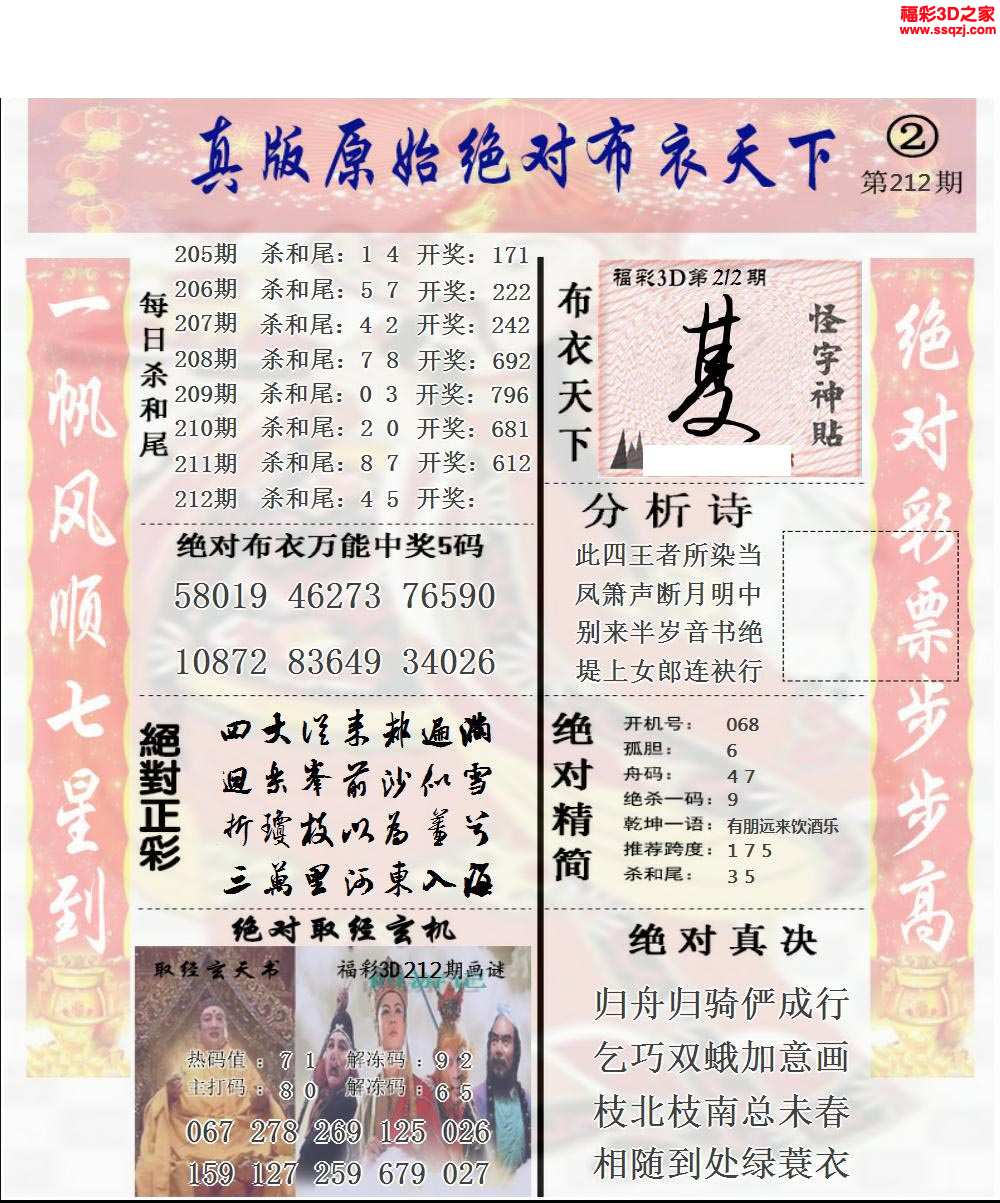 福彩3D之家
www.ssqzj.com
真版原始绝对布衣天下
②
第212期
一帆风顺七星到
每日杀和尾
205期 杀和尾：1 4 开奖：171
206期 杀和尾：5 7 开奖：222
207期 杀和尾：4 2 开奖：242
208期 杀和尾：7 8 开奖：692
209期 杀和尾：0 3 开奖：796
210期 杀和尾：2 0 开奖：681
211期 杀和尾：8 7 开奖：612
212期 杀和尾：4 5 开奖：
绝对布衣万能中奖5码
58019 46273 76590
10872 83649 34026
絕對正彩
四大从来都遍满
迴乐峯前沙似雪
折瓊枝以为羞兮
三萬里河東入海
绝对取经玄机
取经玄天书
福彩3D212期画谜
热码值：7 1 解冻码：9 2
主打码：8 0 解冻码：6 5
067 278 269 125 026
159 127 259 679 027
布衣天下
福彩3D第212期
怪字神贴
分析诗
此四王者所染当
凤箫声断月明中
别来半岁音书绝
堤上女郎连袂行
绝对精简
开机号：068
孤胆：6
舟码：4 7
绝杀一码：9
乾坤一语：有朋远来饮酒乐
推荐跨度：1 7 5
杀和尾：3 5
绝对真决
归舟归骑俨成行
乞巧双蛾加意画
枝北枝南总未春
相随到处绿蓑衣
绝对彩票步步高